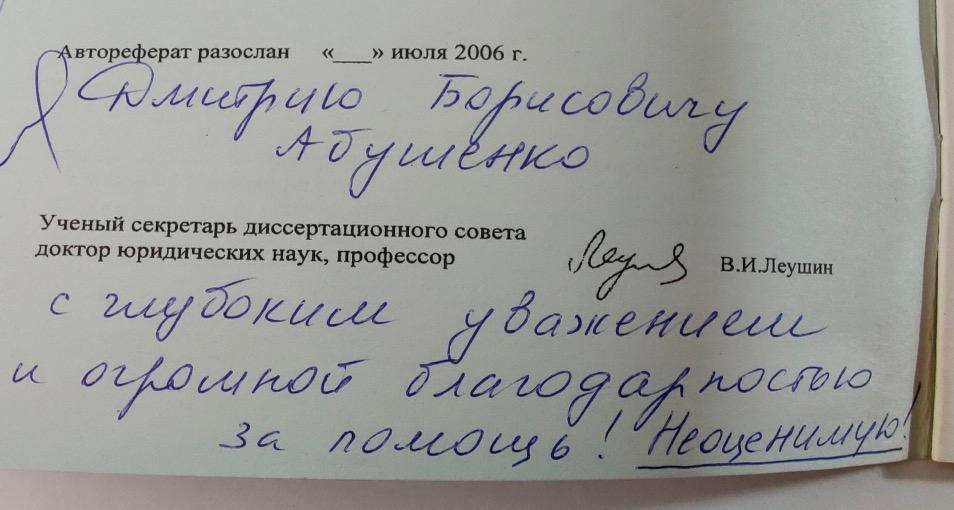 Автореферат разослан «___» июля 2006 г.
Дмитрию Борисовичу
Абушенко
Ученый секретарь диссертационного совета
доктор юридических наук, профессор
В.И.Леушин
с глубоким уважением
и огромной благодарностью
за помощь! Неоценимую!